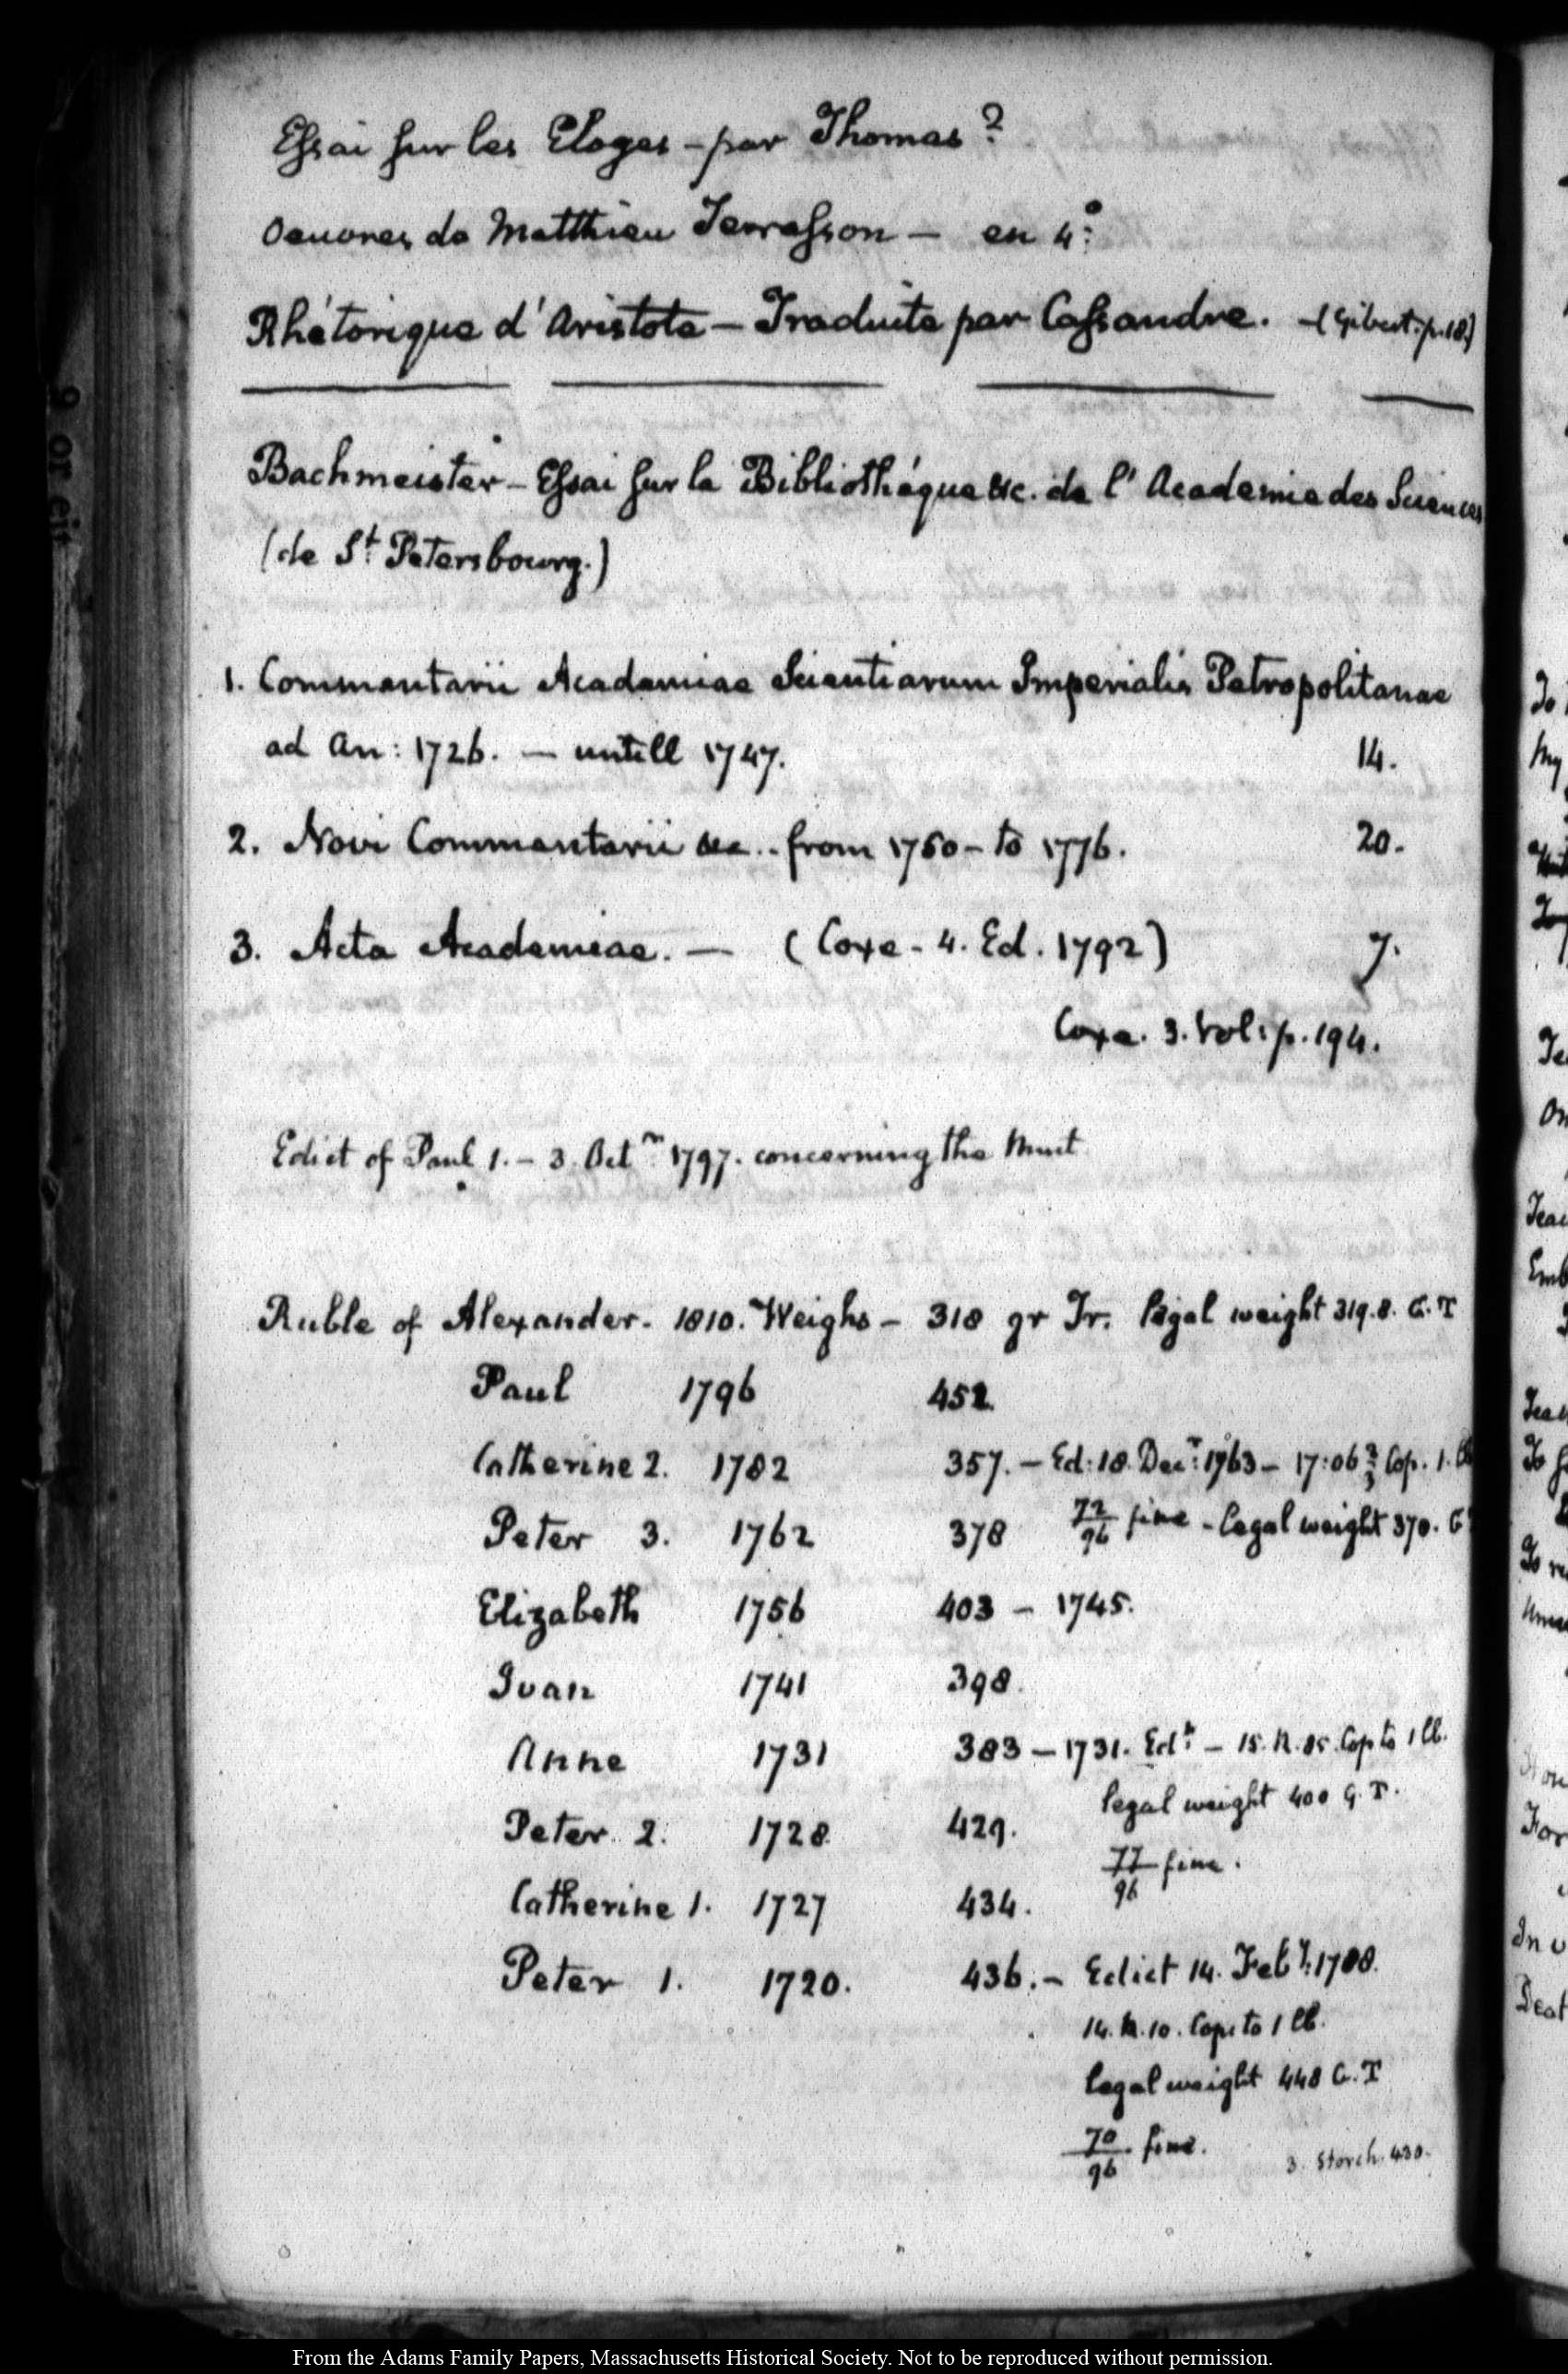 Essai sur les Eloges – par Thomas?
Oeuvres de Matthieu Terrasson – en 4°:
Rhétorique d'Aristote – Traduite par Cassandre. – (Gibert. p. 18.)
Bachmeister – Essai sur la Bibliothéque &c. de l'Academie des Sciences
(de St. Petersbourg.)
1. Commentarii Academiae Scientiarum Imperialis Petropolitanae
ad An: 1726. – untill 1747. 14.
2. Novi Commentarii &c. . from 1750 – to 1776. 20.
3. Acta Academiae. – (Coxe – 4. Ed. 1792) 7.
Coxe. 3. Vol: p. 194.
Edict of Paul 1. – 3. Octr. 1797. concerning the Mint
Ruble of Alexander. 1810. Weighs – 318 gr Tr. legal weight 319.8. G.T
Paul 1796 452.
Catherine 2. 1782 357. – Ed: 18. Decr: 1763 – 17:06 2/3 Cop. 1.
Peter 3. 1762 378 72/96 fine – legal weight 370. G
Elizabeth 1756 403 – 1745.
Ivan 1741 398.
Anne 1731 383 – 1731. Edt: – 15. R. 85. Cop to 1 lb.
legal weight 400 G.T.
Peter 2. 1728. 429.
77/96 fine.
Catherine 1. 1727 434.
Peter 1. 1720. 436. – Edict 14. Feby: 1700.
14. R. 10. Cop: to 1 lb.
legal weight 448 G.T
70/96 fine. 3. Storch. 430.
9 or eit
To
My
Te
On
Teac
Emb
To
To re
For
In
Deat
From the Adams Family Papers, Massachusetts Historical Society. Not to be reproduced without permission.